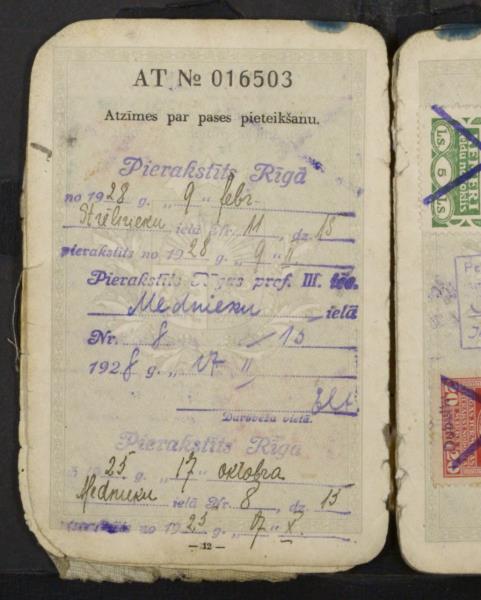 AT № 016503
Atzīmes par pases pieteikšanu.
Pierakstīts Rīgā
no 1928 g. „ 9 „ febr.
Strēlnieku ielā Nr. 11, dz. 15
pierakstīts no 1928 g. „ 9 „ II
Pierakstīts Rīgas pref. III.
Mednieku ielā
Nr. 8 / 15
1928 g. „ 17 „ II
Darbveža vietā.
Pierakstīts Rīgā
1925 g. „ 17 „ oktobra
Mednieku ielā Nr. 8, dz. 15
no 1925 g. „ 17 „ X.
— 12 —
Ls 5 Ls